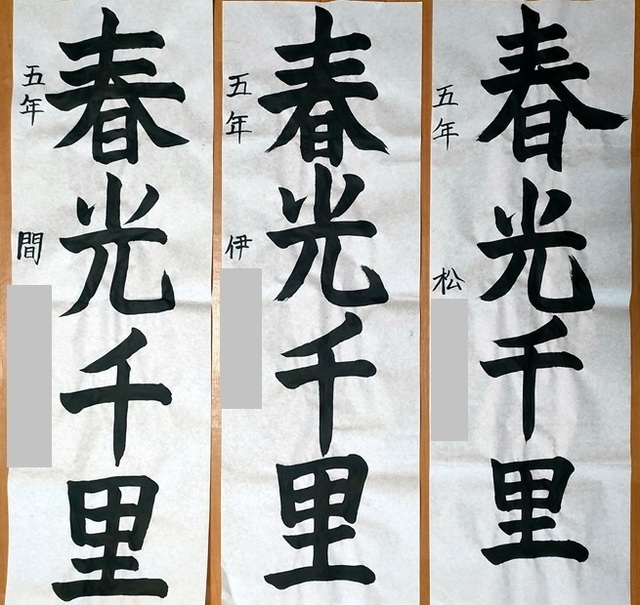 春光千里
五年 間
春光千里
五年 伊
春光千里
五年 松